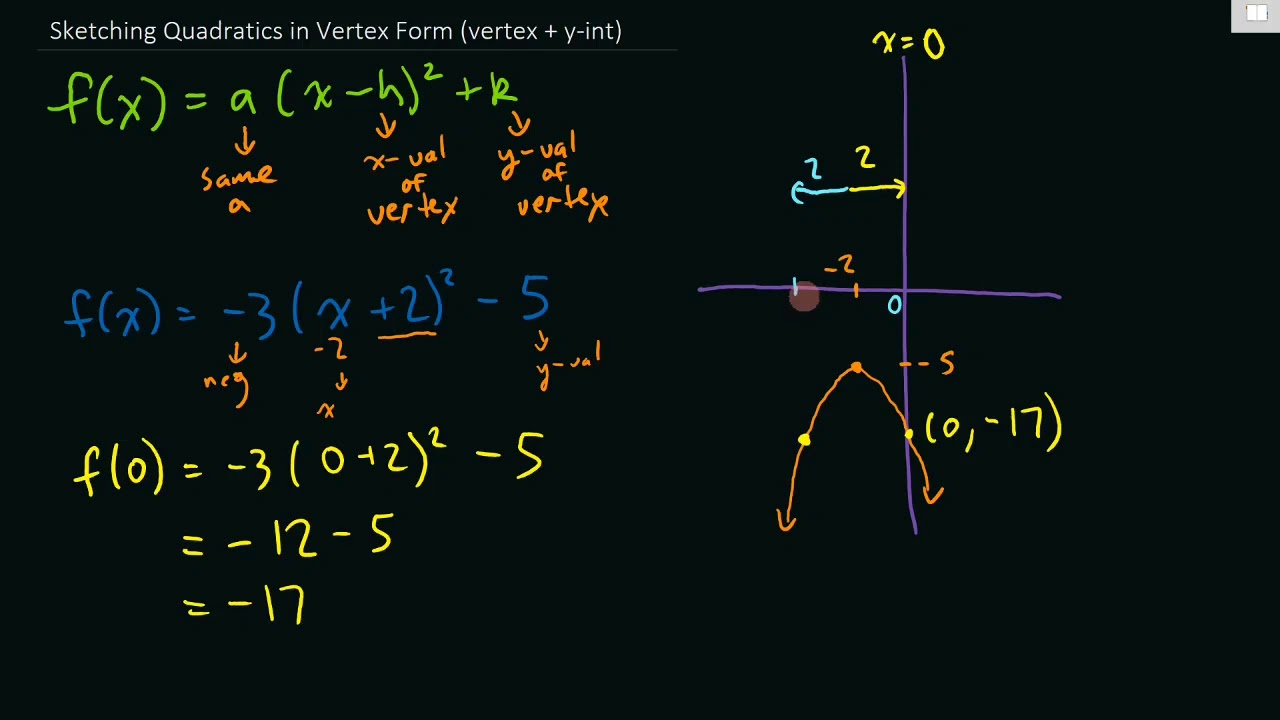 Sketching Quadratics in Vertex Form (vertex + y-int)
f(x) = a (x - h)² + k
same a
x-val of vertex
y-val of vertex
f(x) = -3 (x +2)² - 5
neg
-2
x
y-val
f(0) = -3 (0+2)² - 5
= -12 - 5
= -17
x = 0
2
2
-2
0
-5
(0, -17)